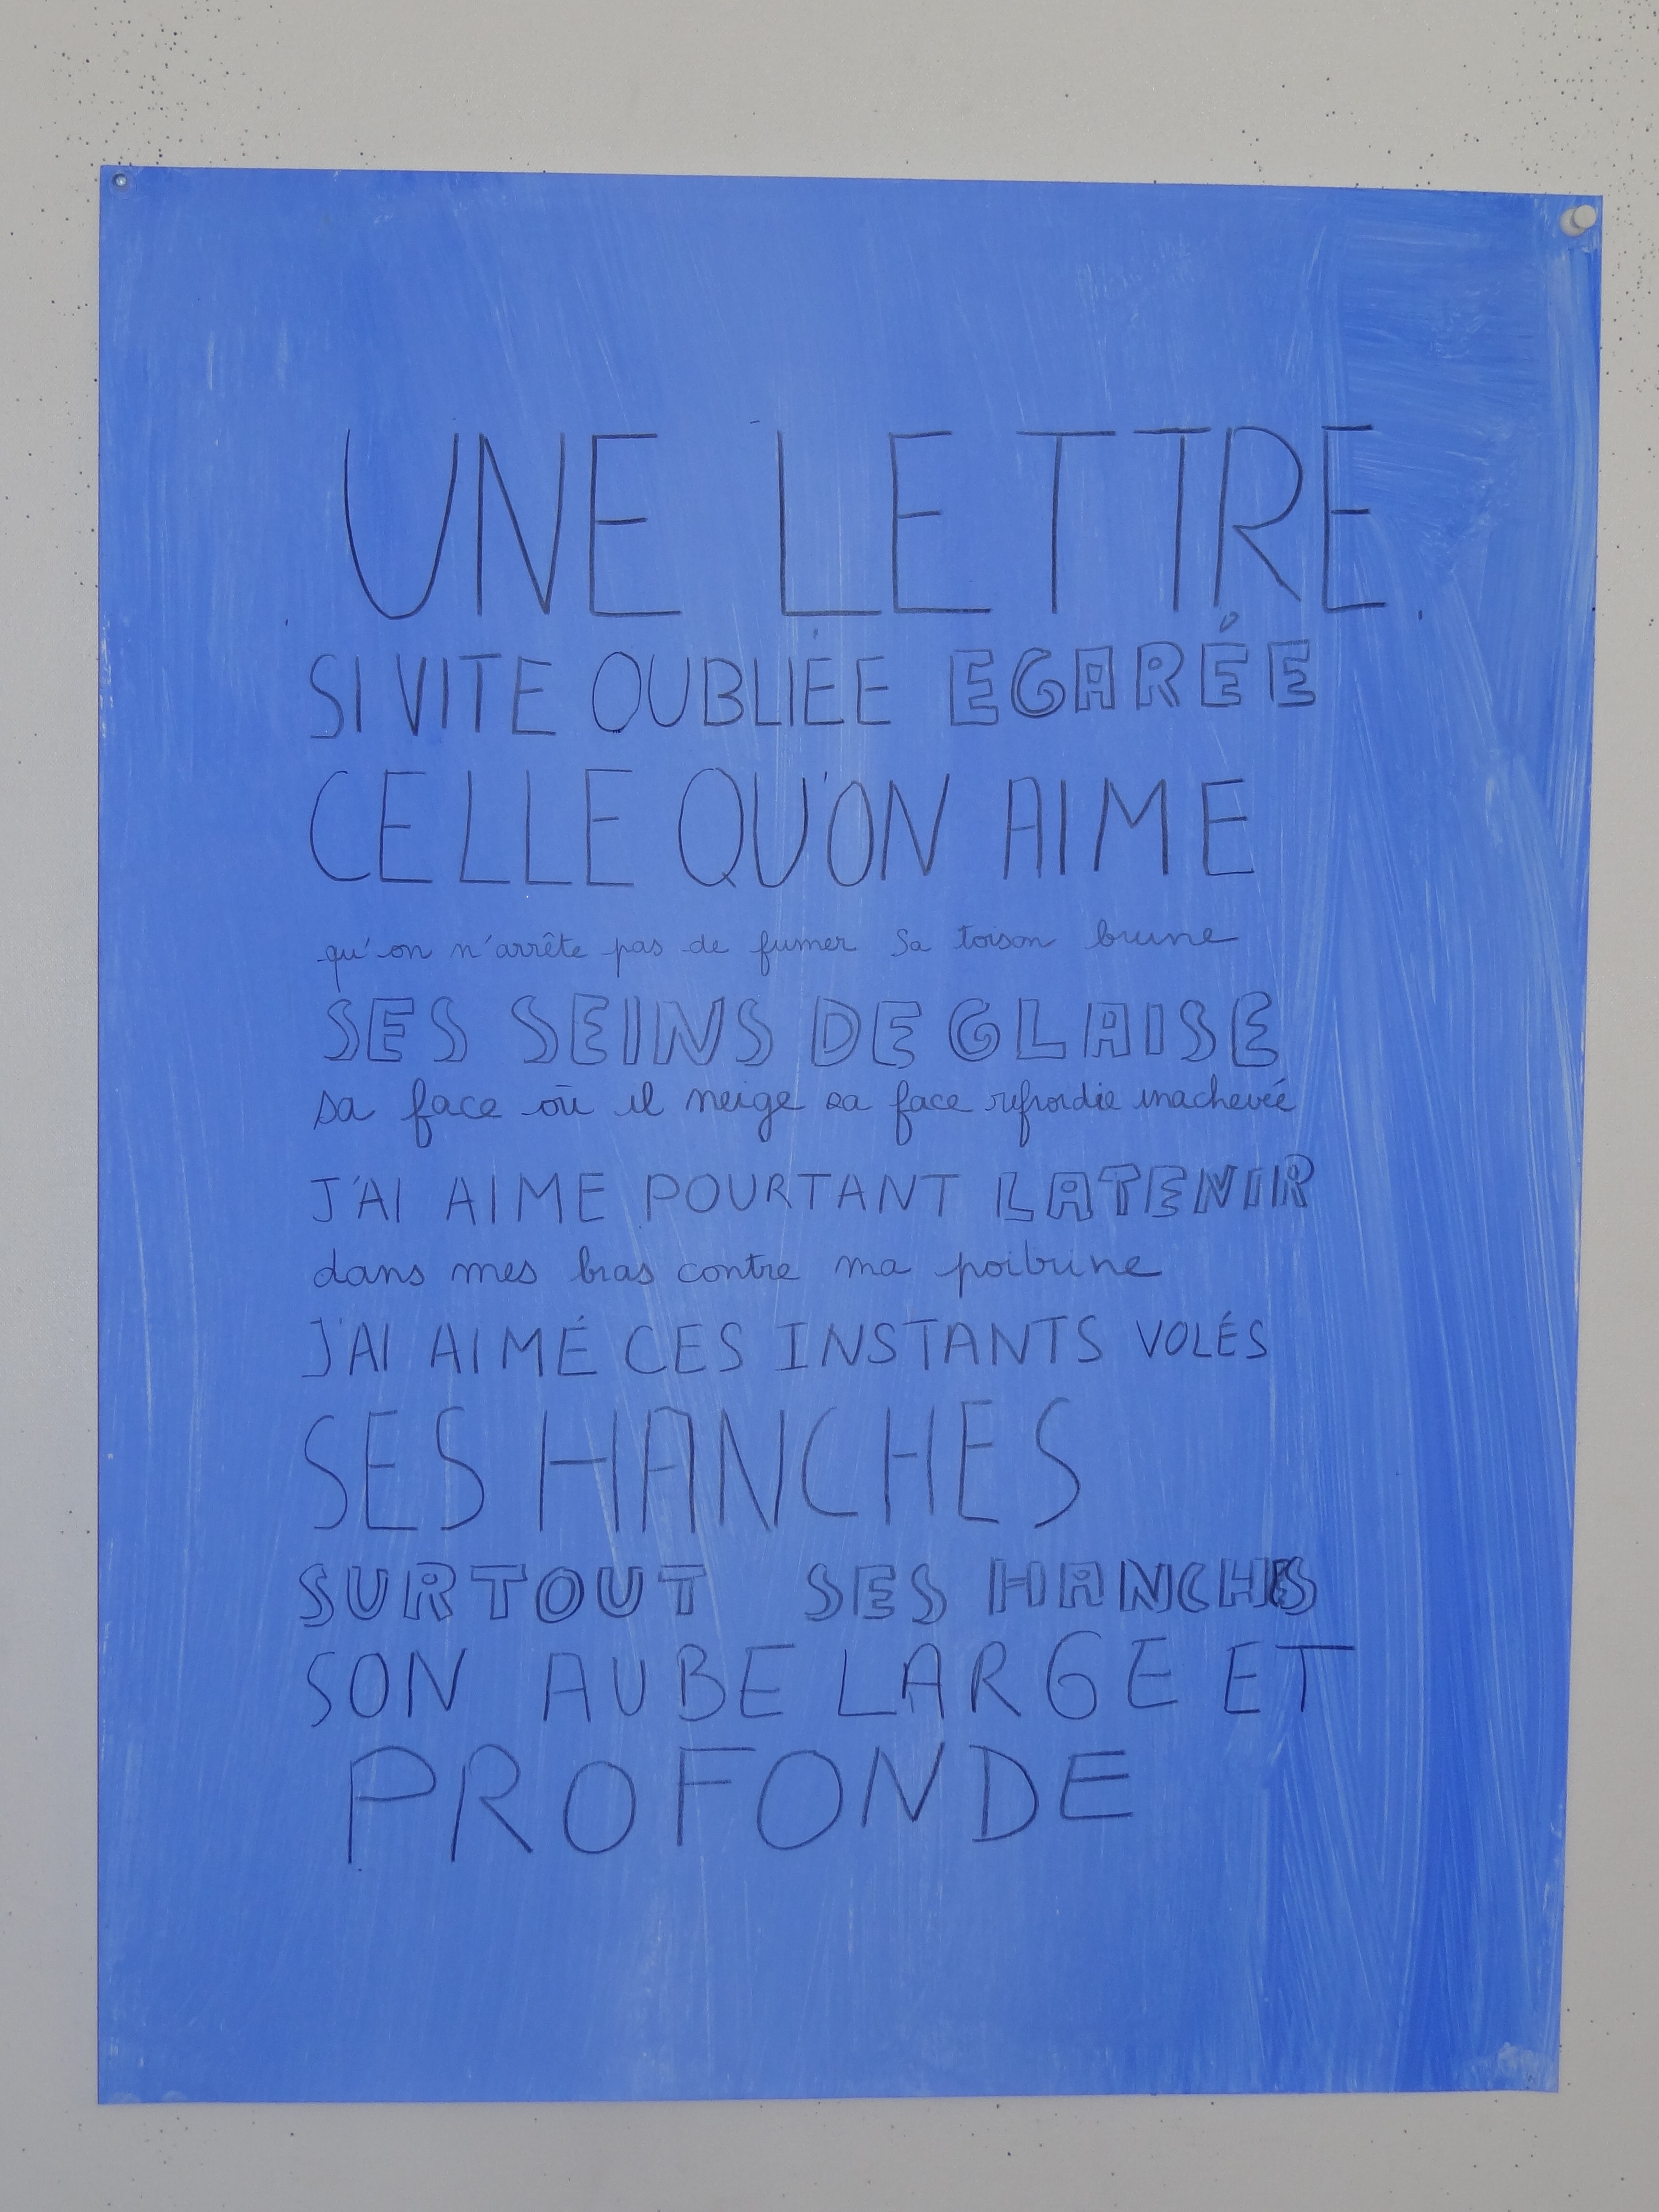 UNE LETTRE
SI VITE OUBLIÉE EGARÉE
CELLE QU'ON AIME
qu'on n'arrête pas de fumer sa toison brune
SES SEINS DE GLAISE
sa face où il neige sa face refroidie inachevée
J'AI AIME POURTANT LA TENIR
dans mes bras contre ma poitrine
J'AI AIMÉ CES INSTANTS VOLÉS
SES HANCHES
SURTOUT SES HANCHES
SON AUBE LARGE ET
PROFONDE